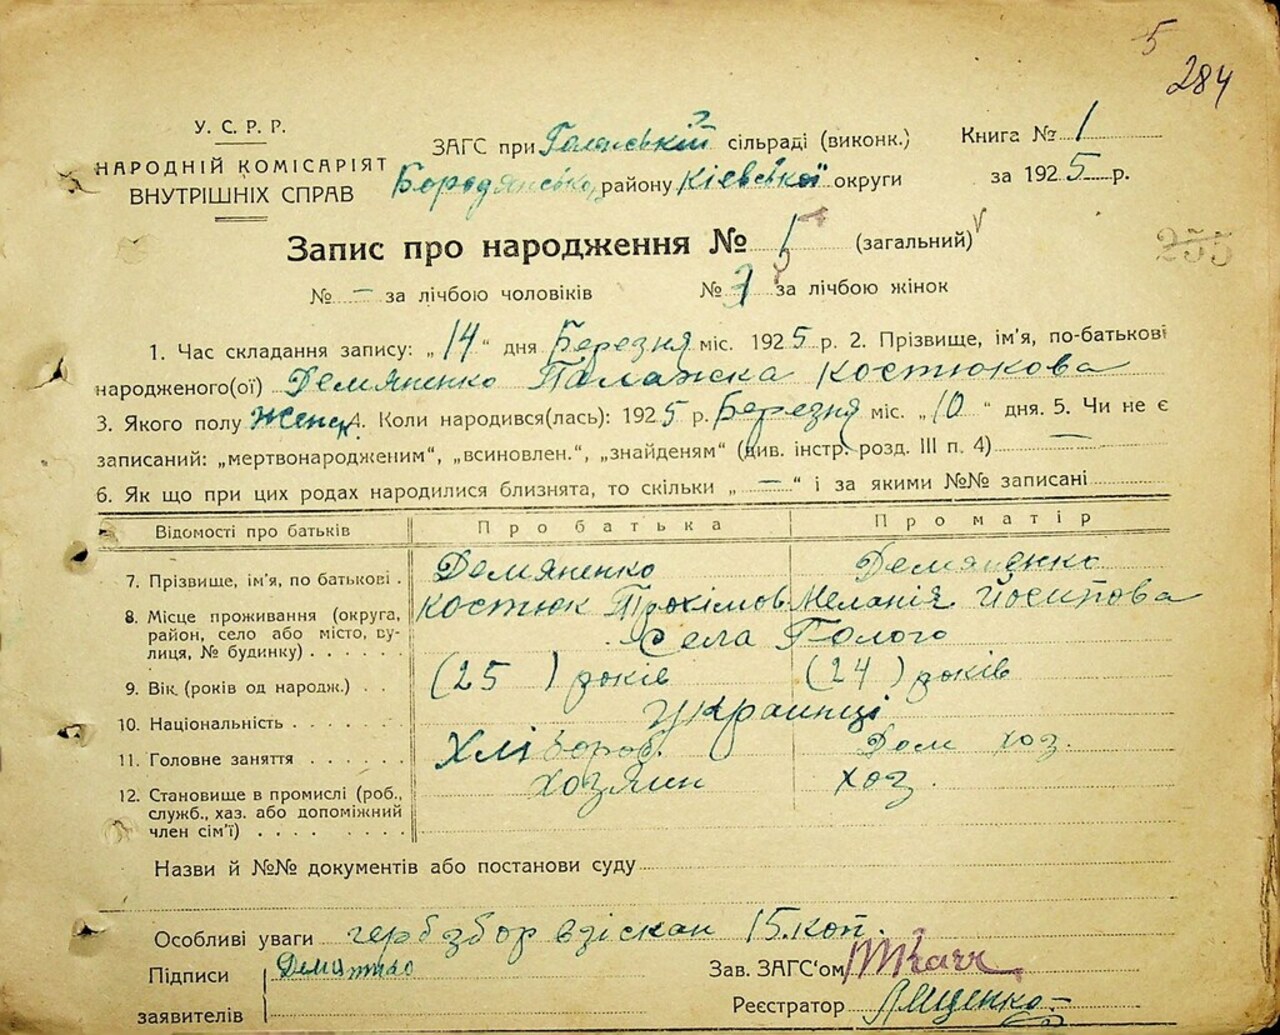 5
284
У. С. Р. Р.
НАРОДНІЙ КОМІСАРІЯТ
ВНУТРІШНІХ СПРАВ
ЗАГС при сільраді (виконк.)
Бородянсько району Кіевської округи
Книга № 1
за 1925 р.
Запис про народження № 5 (загальний)
255
№ — за лічбою чоловіків № 3 за лічбою жінок
1. Час складання запису: „14" дня Березня міс. 1925 р. 2. Прізвище, ім'я, по-батькові
народженого(ої) Демяненко Палажка Костюкова
3. Якого полу Женск. 4. Коли народився(лась): 1925 р. Березня міс. „10" дня. 5. Чи не є
записаний: „мертвонародженим", „всиновлен.", „знайденям" (див. інстр. розд. III п. 4) —
6. Як що при цих родах народилися близнята, то скільки „—" і за якими №№ записані
Відомості про батьків Про батька Про матір
7. Прізвище, ім'я, по батькові . Демяненко Демяненко
Костюк Трохімов Меланія Йосипова
8. Місце проживання (округа,
район, село або місто, ву-
лиця, № будинку) . . . . . . Села
9. Вік (років од народж.) . . (25) років (24) років
10. Національність . . . . . . . Украинці
11. Головне заняття . . . . . . Хлібороб. Дом хоз.
12. Становище в промислі (роб.,
служб., хаз. або допоміжний
член сім'ї) . . . . . . . . хозяин хоз.
Назви й №№ документів або постанови суду
Особливі уваги герб збор взіскан 15 коп.
Підписи
заявителів
Зав. ЗАГС'ом
Реєстратор